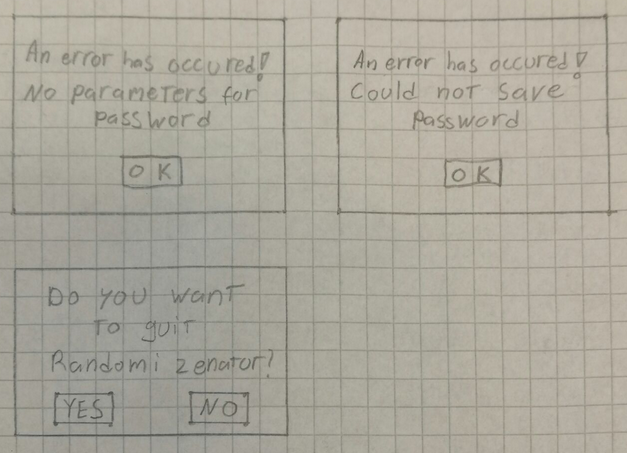 An error has occured!
No parameters for
password
OK
An error has occured!
Could not save
password
OK
Do you want
to quit
Randomizenator?
YES
NO